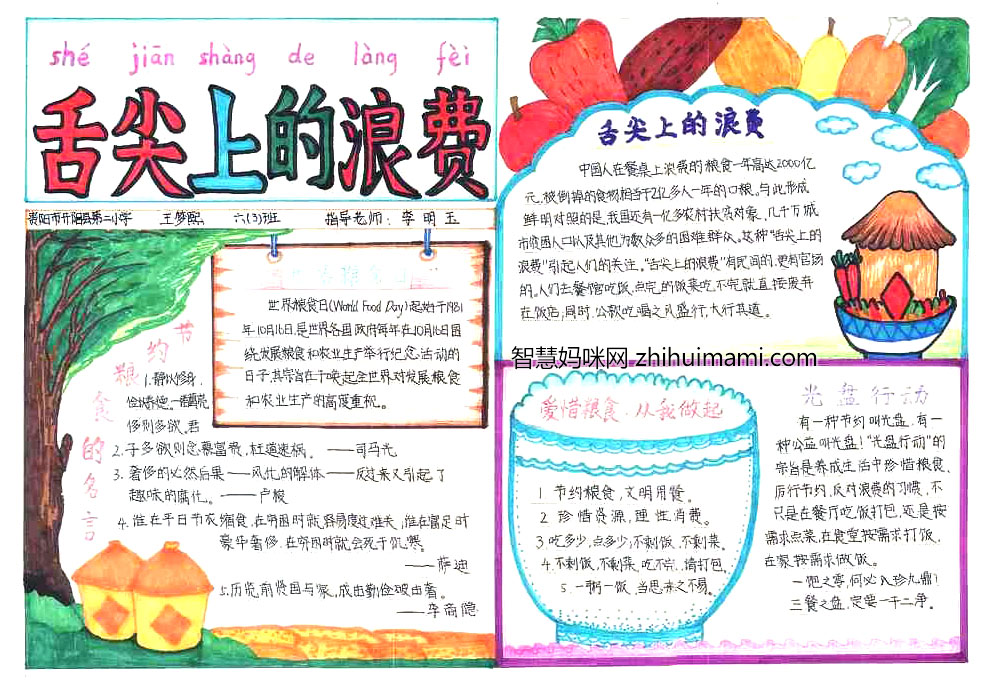 shé jiān shàng de làng fèi
舌尖上的浪费
贵阳市开阳县第二小学 王梦熙 六(3)班 指导老师：李明玉
世界粮食日(World Food Day)起始于1981
年10月16日,是世界各国政府每年在10月16日围
绕发展粮食和农业生产举行纪念活动的
日子,其宗旨在于唤起全世界对发展粮食
和农业生产的高度重视。
节约粮食的名言
1.静以修身,
俭以养德。
侈则多欲。君
2.子多欲则念慕富贵,枉道速祸。——司马光
3.奢侈的必然后果——风化的解体——反过来又引起了
趣味的腐化。——卢梭
4.谁在平日节衣缩食,在穷困时就容易度过难关,谁在富足时
豪华奢侈,在穷困时就会死于饥寒。
——萨迪
5.历览前贤国与家,成由勤俭破由奢。
——李商隐
舌尖上的浪费
中国人在餐桌上浪费的粮食一年高达2000亿
元,被倒掉的食物相当于2亿多人一年的口粮。与此形成
鲜明对照的是,我国还有一亿多农村扶贫对象、几千万城
市贫困人口以及其他为数众多的困难群众。这种“舌尖上的
浪费”引起人们的关注。“舌尖上的浪费”有民间的,更有官场
的。人们去餐馆吃饭,点完的饭菜吃不完就直接废弃
在饭店;同时,公款吃喝之风盛行,大行其道。
智慧妈咪网 zhihuimami.com
爱惜粮食,从我做起
1.节约粮食,文明用餐。
2.珍惜资源,理性消费。
3.吃多少,点多少;不剩饭、不剩菜。
4.不剩饭,不剩菜,吃不完,搞打包。
5.一粥一饭,当思来之不易。
光盘行动
有一种节约叫光盘,有一
种公益叫光盘!“光盘行动”的
宗旨是养成生活中珍惜粮食、
厉行节约、反对浪费的习惯,不
只是在餐厅吃饭打包,还是按
需求点菜,在食堂按需求打饭,
在家按需求做饭。
一饱之享,何必八珍九鼎!
三餐之盘,定要一干二净。